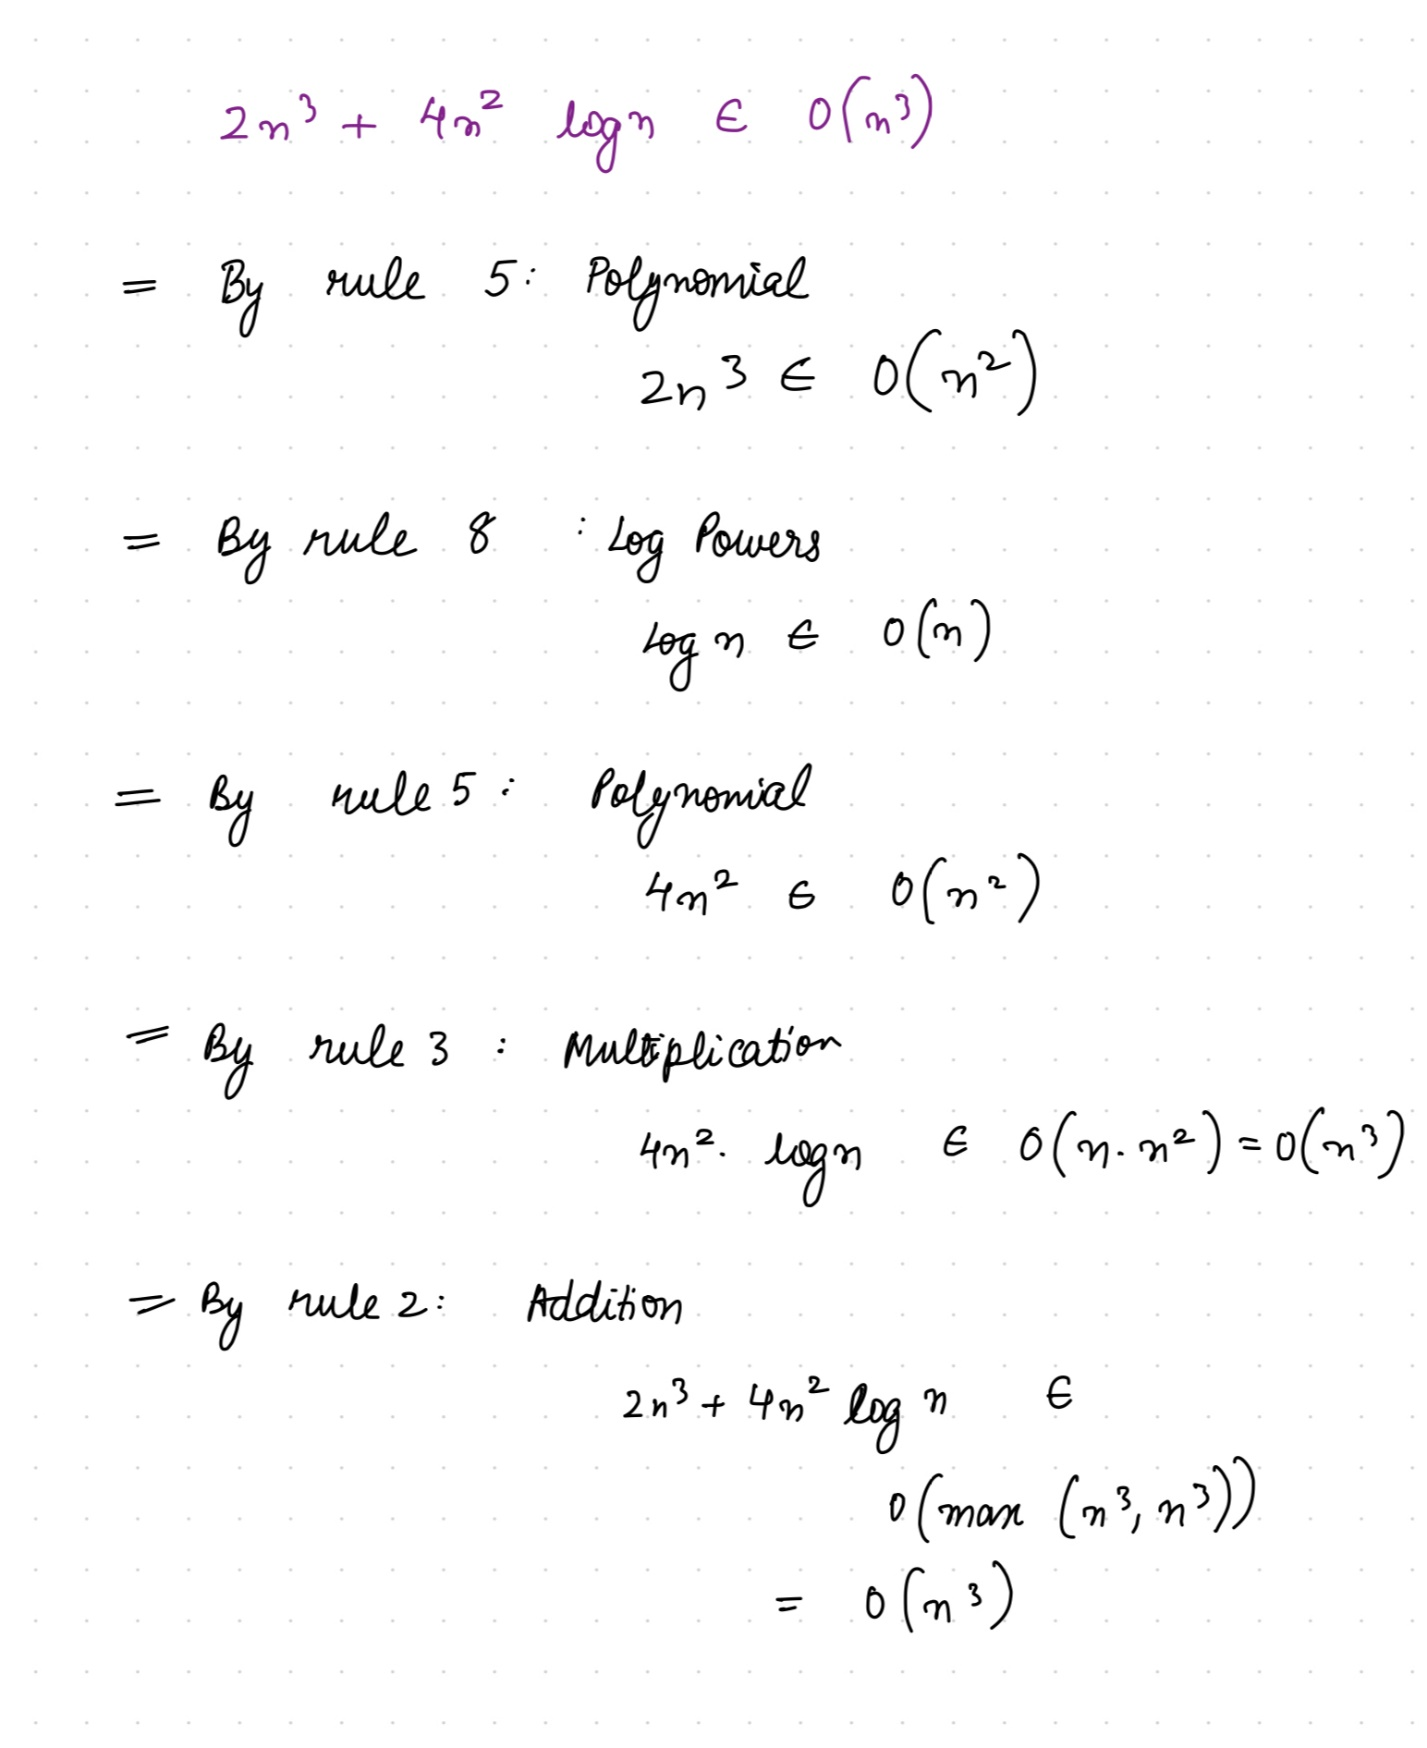 2n³ + 4n² log n ∈ O(n³)
= By rule 5: Polynomial
2n³ ∈ O(n²)
= By rule 8 : Log Powers
Log n ∈ O(n)
= By rule 5: Polynomial
4n² ∈ O(n²)
= By rule 3 : Multiplication
4n². log n ∈ O(n. n²) = O(n³)
= By rule 2: Addition
2n³ + 4n² log n ∈
O(max (n³, n³))
= O(n³)